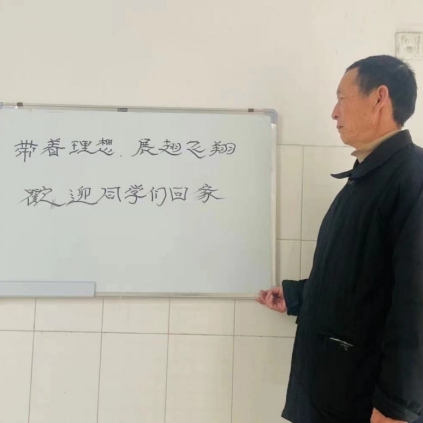 带着理想、展翅飞翔
歡迎同学们回家